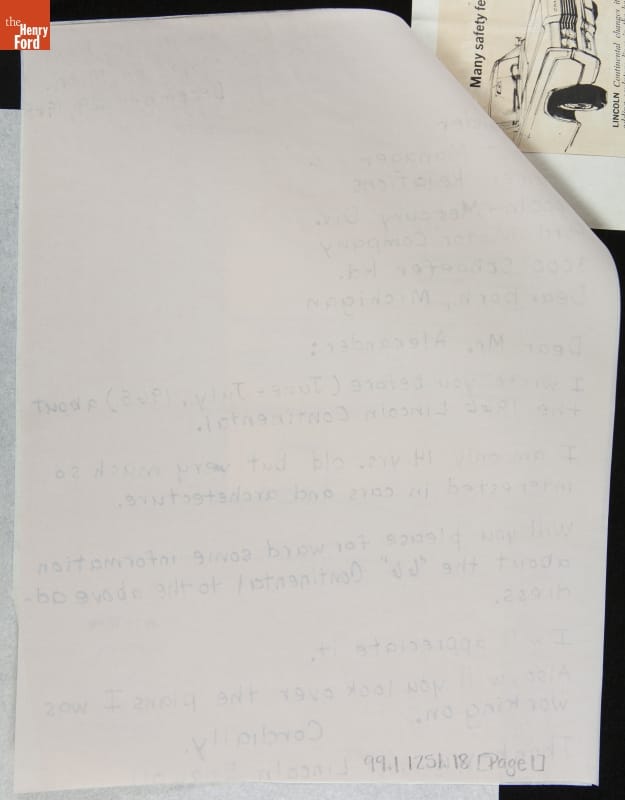 the Henry Ford
Many safety fe
LINCOLN Continental changes it
Manager
Relations
Mercury Div.
Company
3000 Schaefer Rd.
Dearborn, Michigan
Dear Mr. Alexander:
I wrote you before (June - July, 1965) about
the 1966 Lincoln Continental.
I am only 14 yrs. old but very much so
interested in cars and archetecture.
Will you please forward some information
about the "66" Continental to the above ad-
dress.
I will appreciate it.
Also, will you look over the plans I was
working on.
Cordially,
Lincoln
99.1.1251.18 [Page 1]